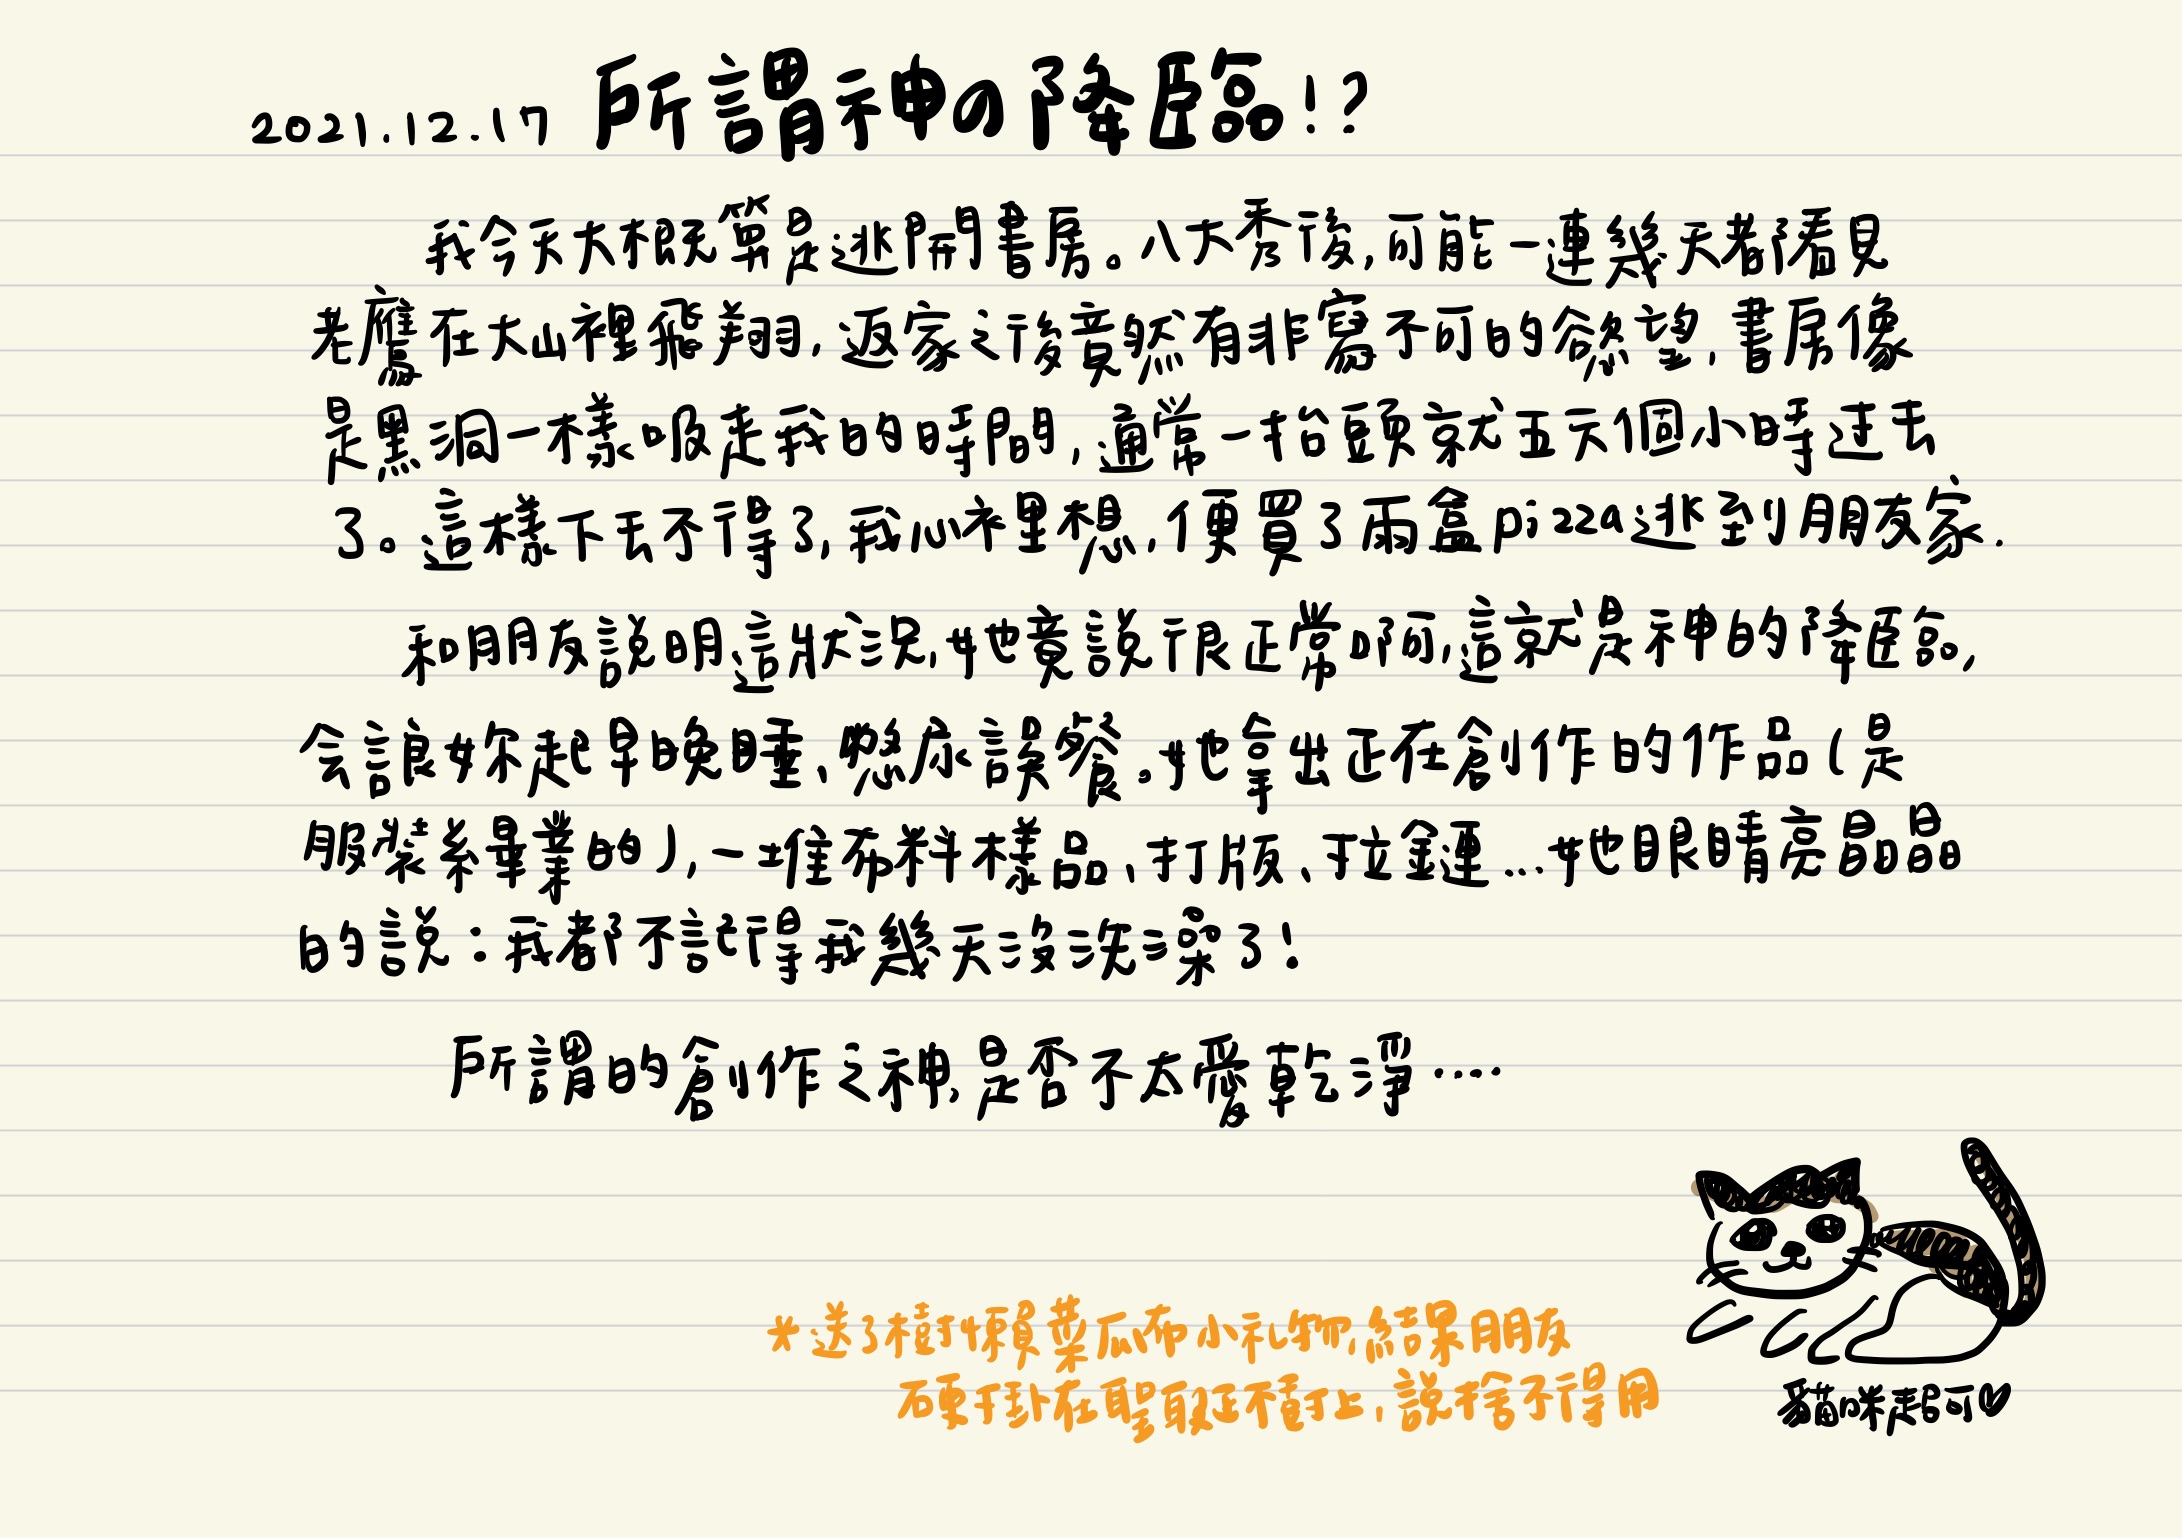 2021.12.17 所謂神の降臨!?
我今天大概算是逃開書房。八大秀後,可能一連幾天都看見
老鷹在大山裡飛翔,返家之後竟然有非寫不可的慾望,書房像
是黑洞一樣吸走我的時間,通常一抬頭就五六個小時过去
了。這樣下去不得了,我心裡想,便買了兩盒pizza逃到朋友家.
和朋友說明這狀況,她竟說很正常啊,這就是神的降臨,
会讓妳起早晚睡、憋尿誤餐。她拿出正在創作的作品(是
服裝系畢業的),一堆布料樣品、打版、拉鏈...她眼睛亮晶晶
的說:我都不記得我幾天沒洗澡了!
所謂的創作之神,是否不太愛乾淨....
*送了樹懶菜瓜布小礼物,結果朋友
硬掛在聖誕樹上,說捨不得用
貓咪超可♡